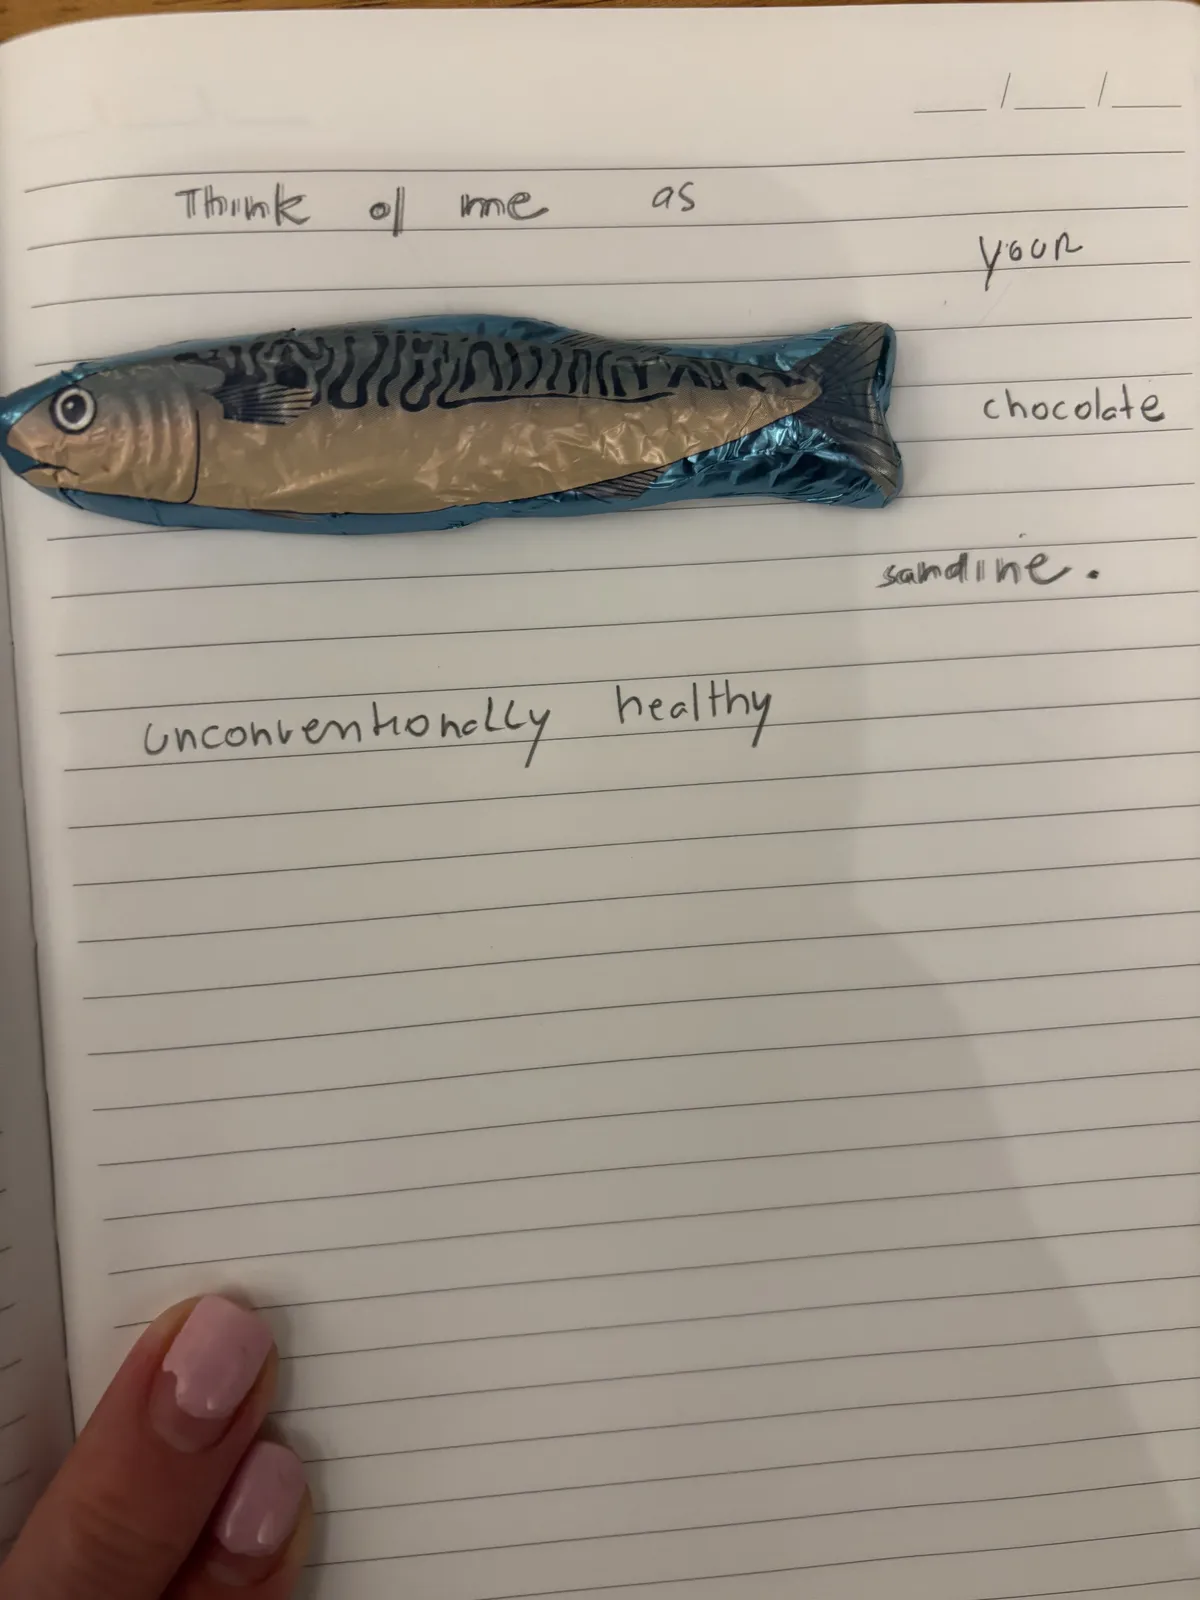 Think of me as
your
chocolate
sardine.
unconventionally healthy